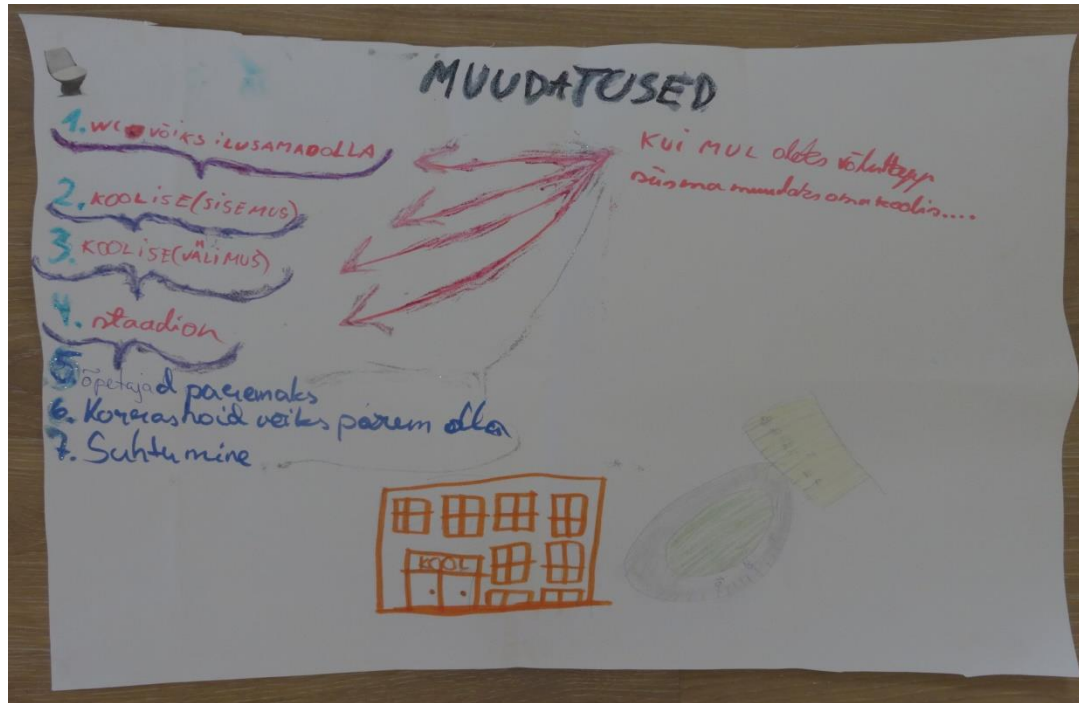 MUUDATUSED
1. WC võiks ilusamad olla
2. KOOLiSE(SiSEMUS)
3. KOOLiSE(VÄLiMUS)
4. staadion
5 õpetajad paremaks
6. Korrashoid võiks parem olla
7. Suhtumine
KUI MUL oleks võlukepp
siis ma muudaks oma koolis....
KOOL